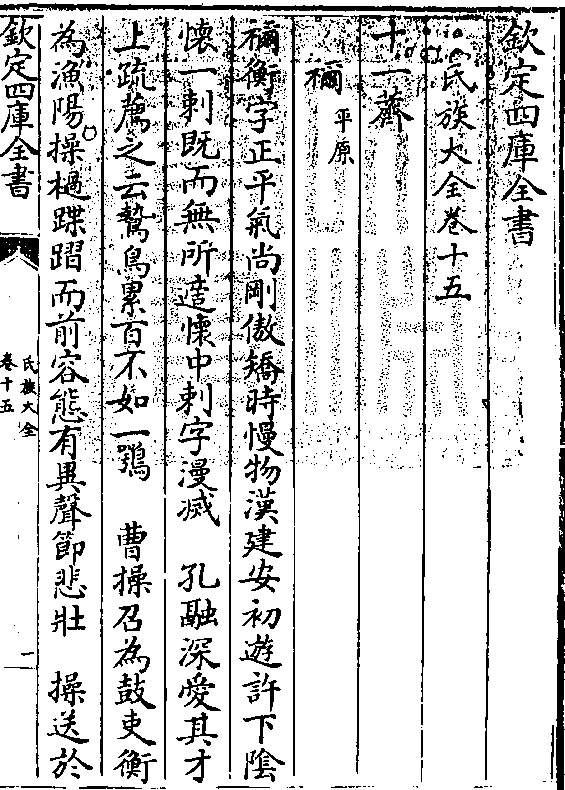 欽定四庫全書
氏族大全卷十五
十一薺
禰 平原
禰衡字正平氣尚剛傲矯時慢物漢建安初遊許下陰
懷一刺既而無所適懷中刺字漫滅 孔融深愛其才
上疏薦之云鷙鳥累百不如一鶚 曹操召為鼓吏衡
為漁陽操檛蹀躧而前容態有異聲節悲壯 操送於
欽定四庫全書
氏族大全
卷十五
一